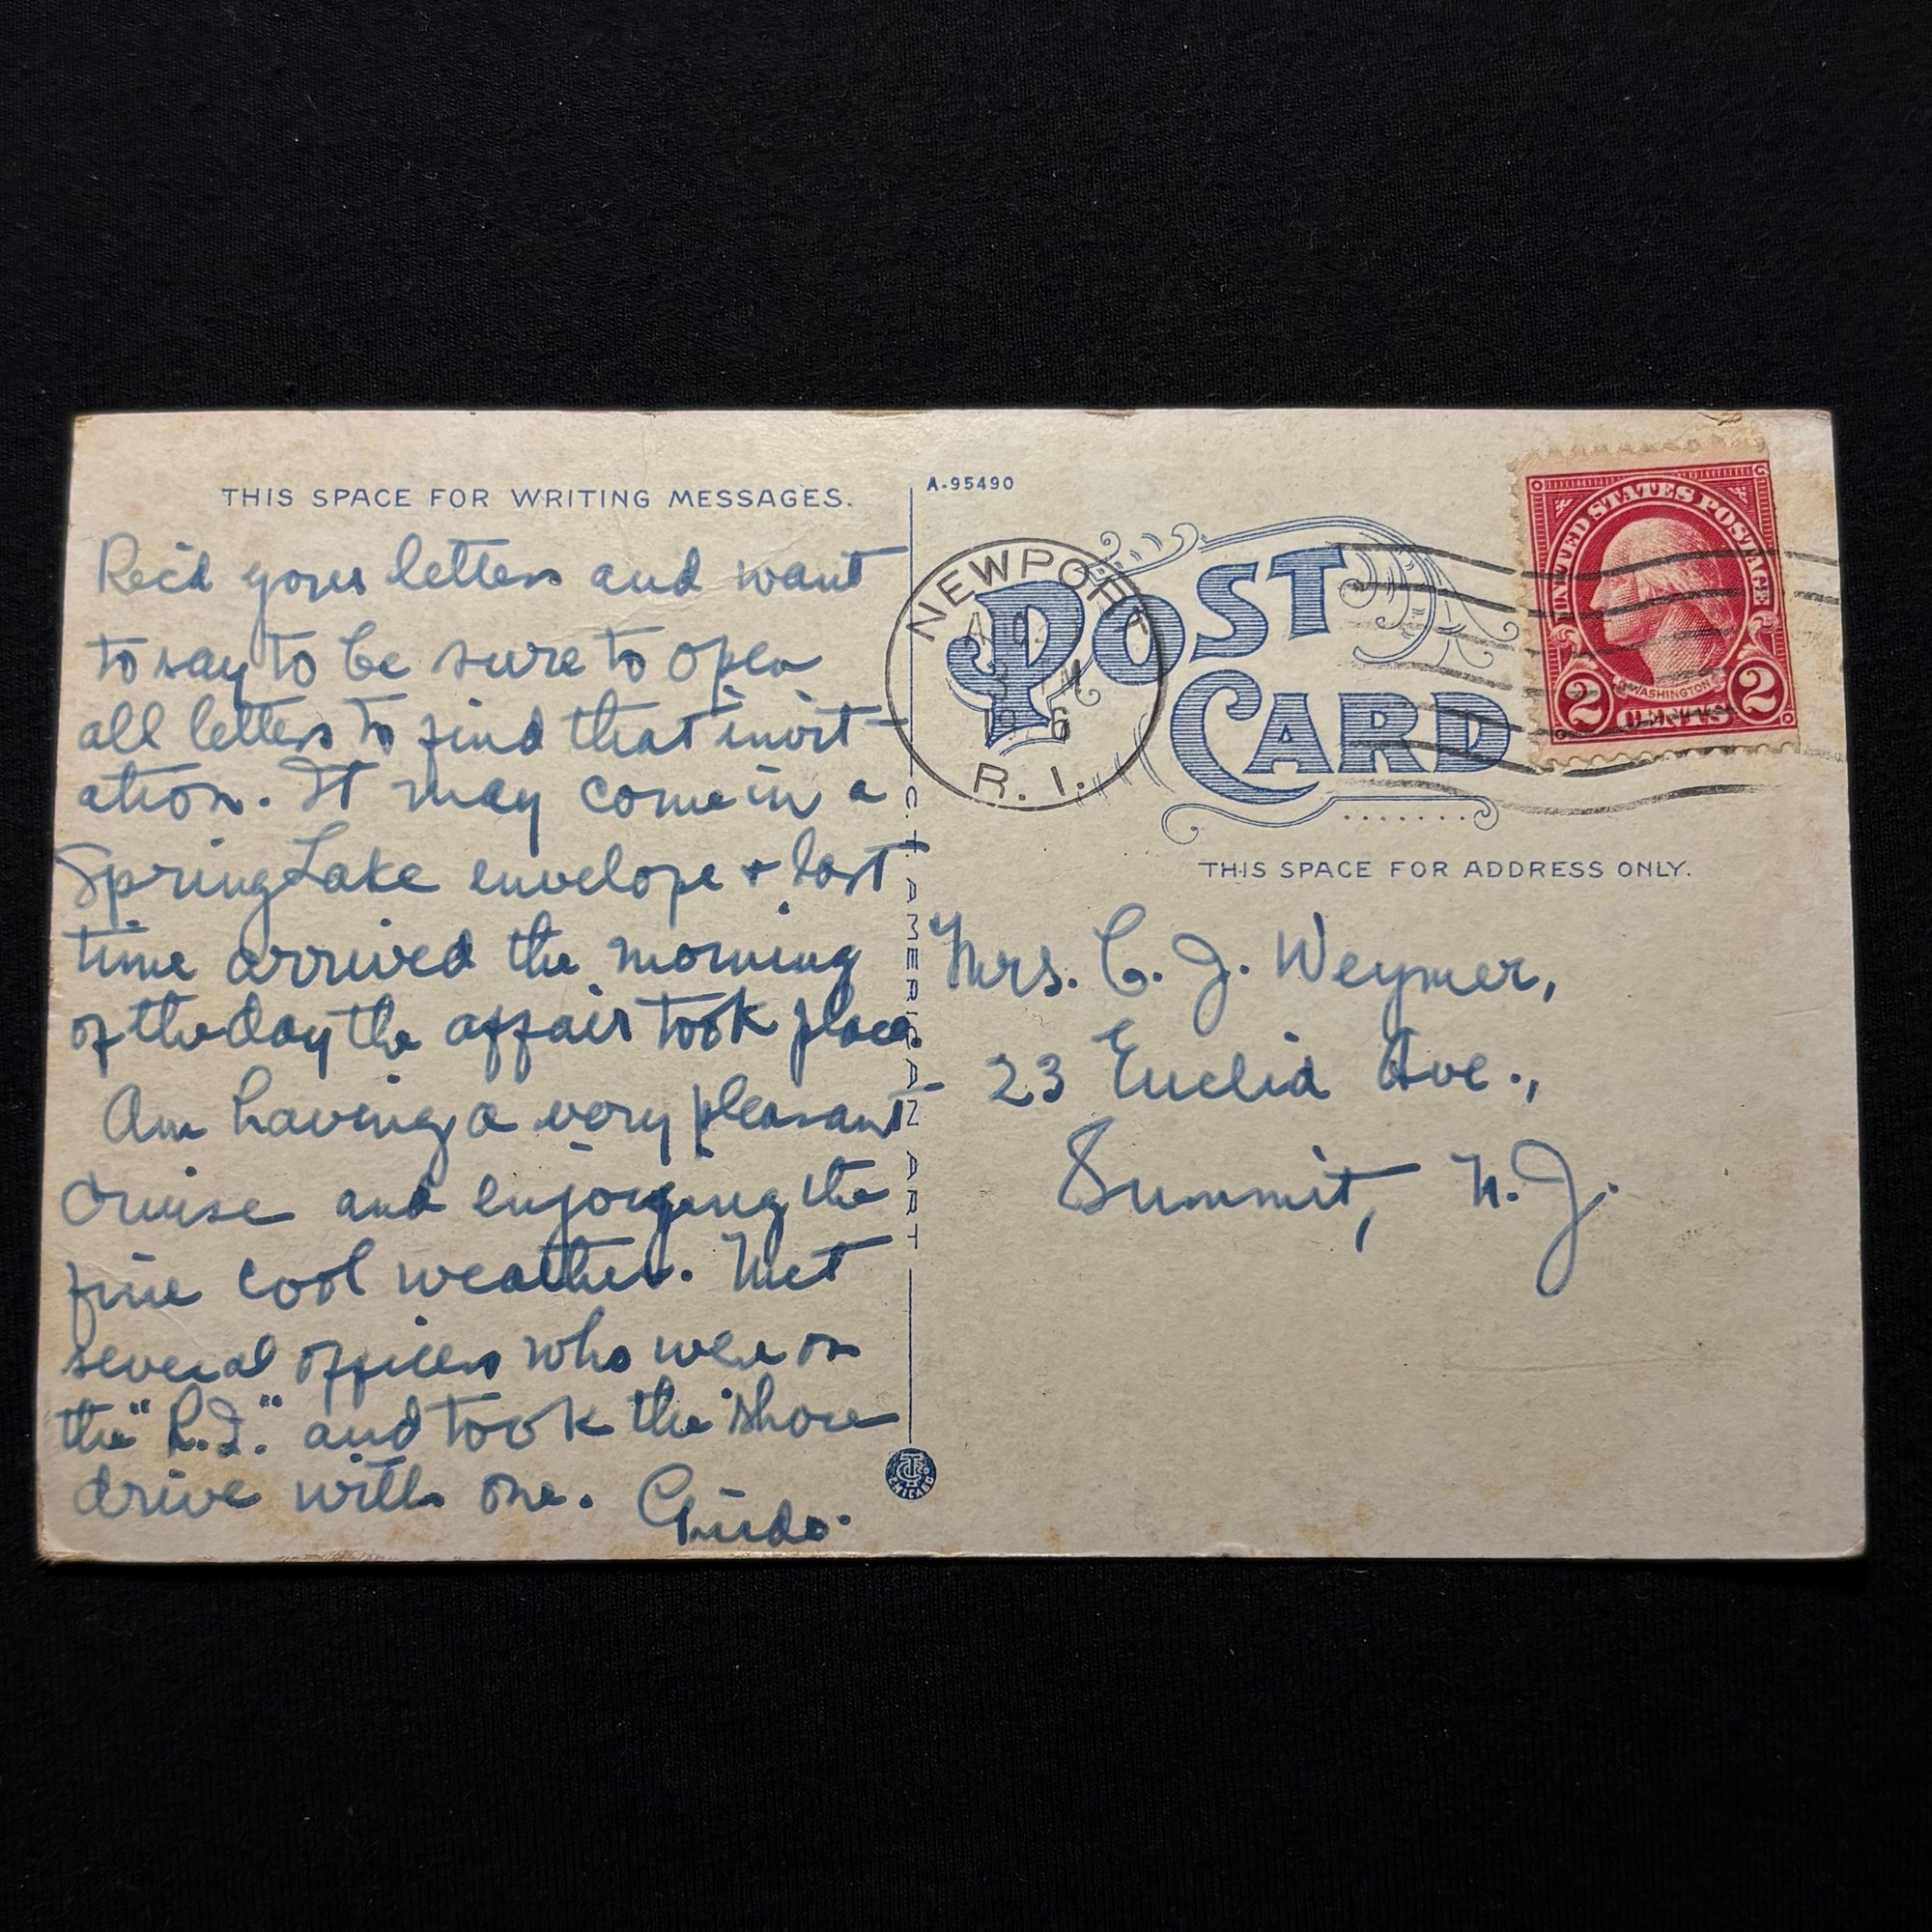 THIS SPACE FOR WRITING MESSAGES.
Rec'd your letters and want
to say to be sure to open
all letters to find that invit-
ation. It may come in a
Spring Lake envelope + last
time arrived the morning
of the day the affair took place.
Am having a very pleasant
cruise and enjoying the
fine cool weather. Met
several officers who were on
the "R.I." and took the shore
drive with one. Guido.
A-95490
C. T. AMERICAN ART
CTC
CHICAGO
POST
CARD
NEWPORT
R. I.
UNITED STATES POSTAGE
WASHINGTON
2 CENTS 2
THIS SPACE FOR ADDRESS ONLY.
Mrs. C. J. Weymer,
23 Euclid Ave.,
Summit, N.J.